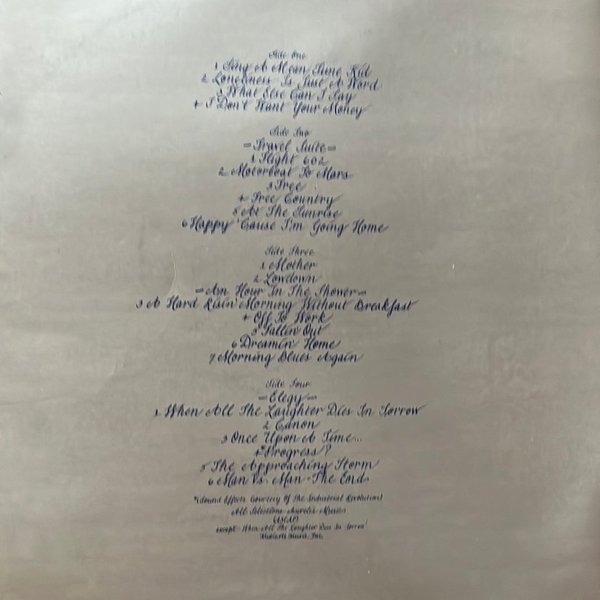 Side One
1 Sing A Mean Tune Kid
2 Loneliness Is Just A Word
3 What Else Can I Say
4 I Don't Want Your Money
Side Two
=Travel Suite=
1 Flight 602
2 Motorboat To Mars
3 Free
4 Free Country
5 At The Sunrise
6 Happy 'Cause I'm Going Home
Side Three
1 Mother
2 Lowdown
=An Hour In The Shower=
3 A Hard Risin' Morning Without Breakfast
4 Off To Work
5 Fallin' Out
6 Dreamin' Home
7 Morning Blues Again
Side Four
=Elegy=
1 When All The Laughter Dies In Sorrow
2 Canon
3 Once Upon A Time...
4 *Progress?
5 The Approaching Storm
6 Man Vs. Man-The End
*(Sound Effects Courtesy Of The Industrial Revolution)
All Selections Aurelius Music
(ASCAP)
except 'When All The Laughter Dies In Sorrow'
Music, Inc.